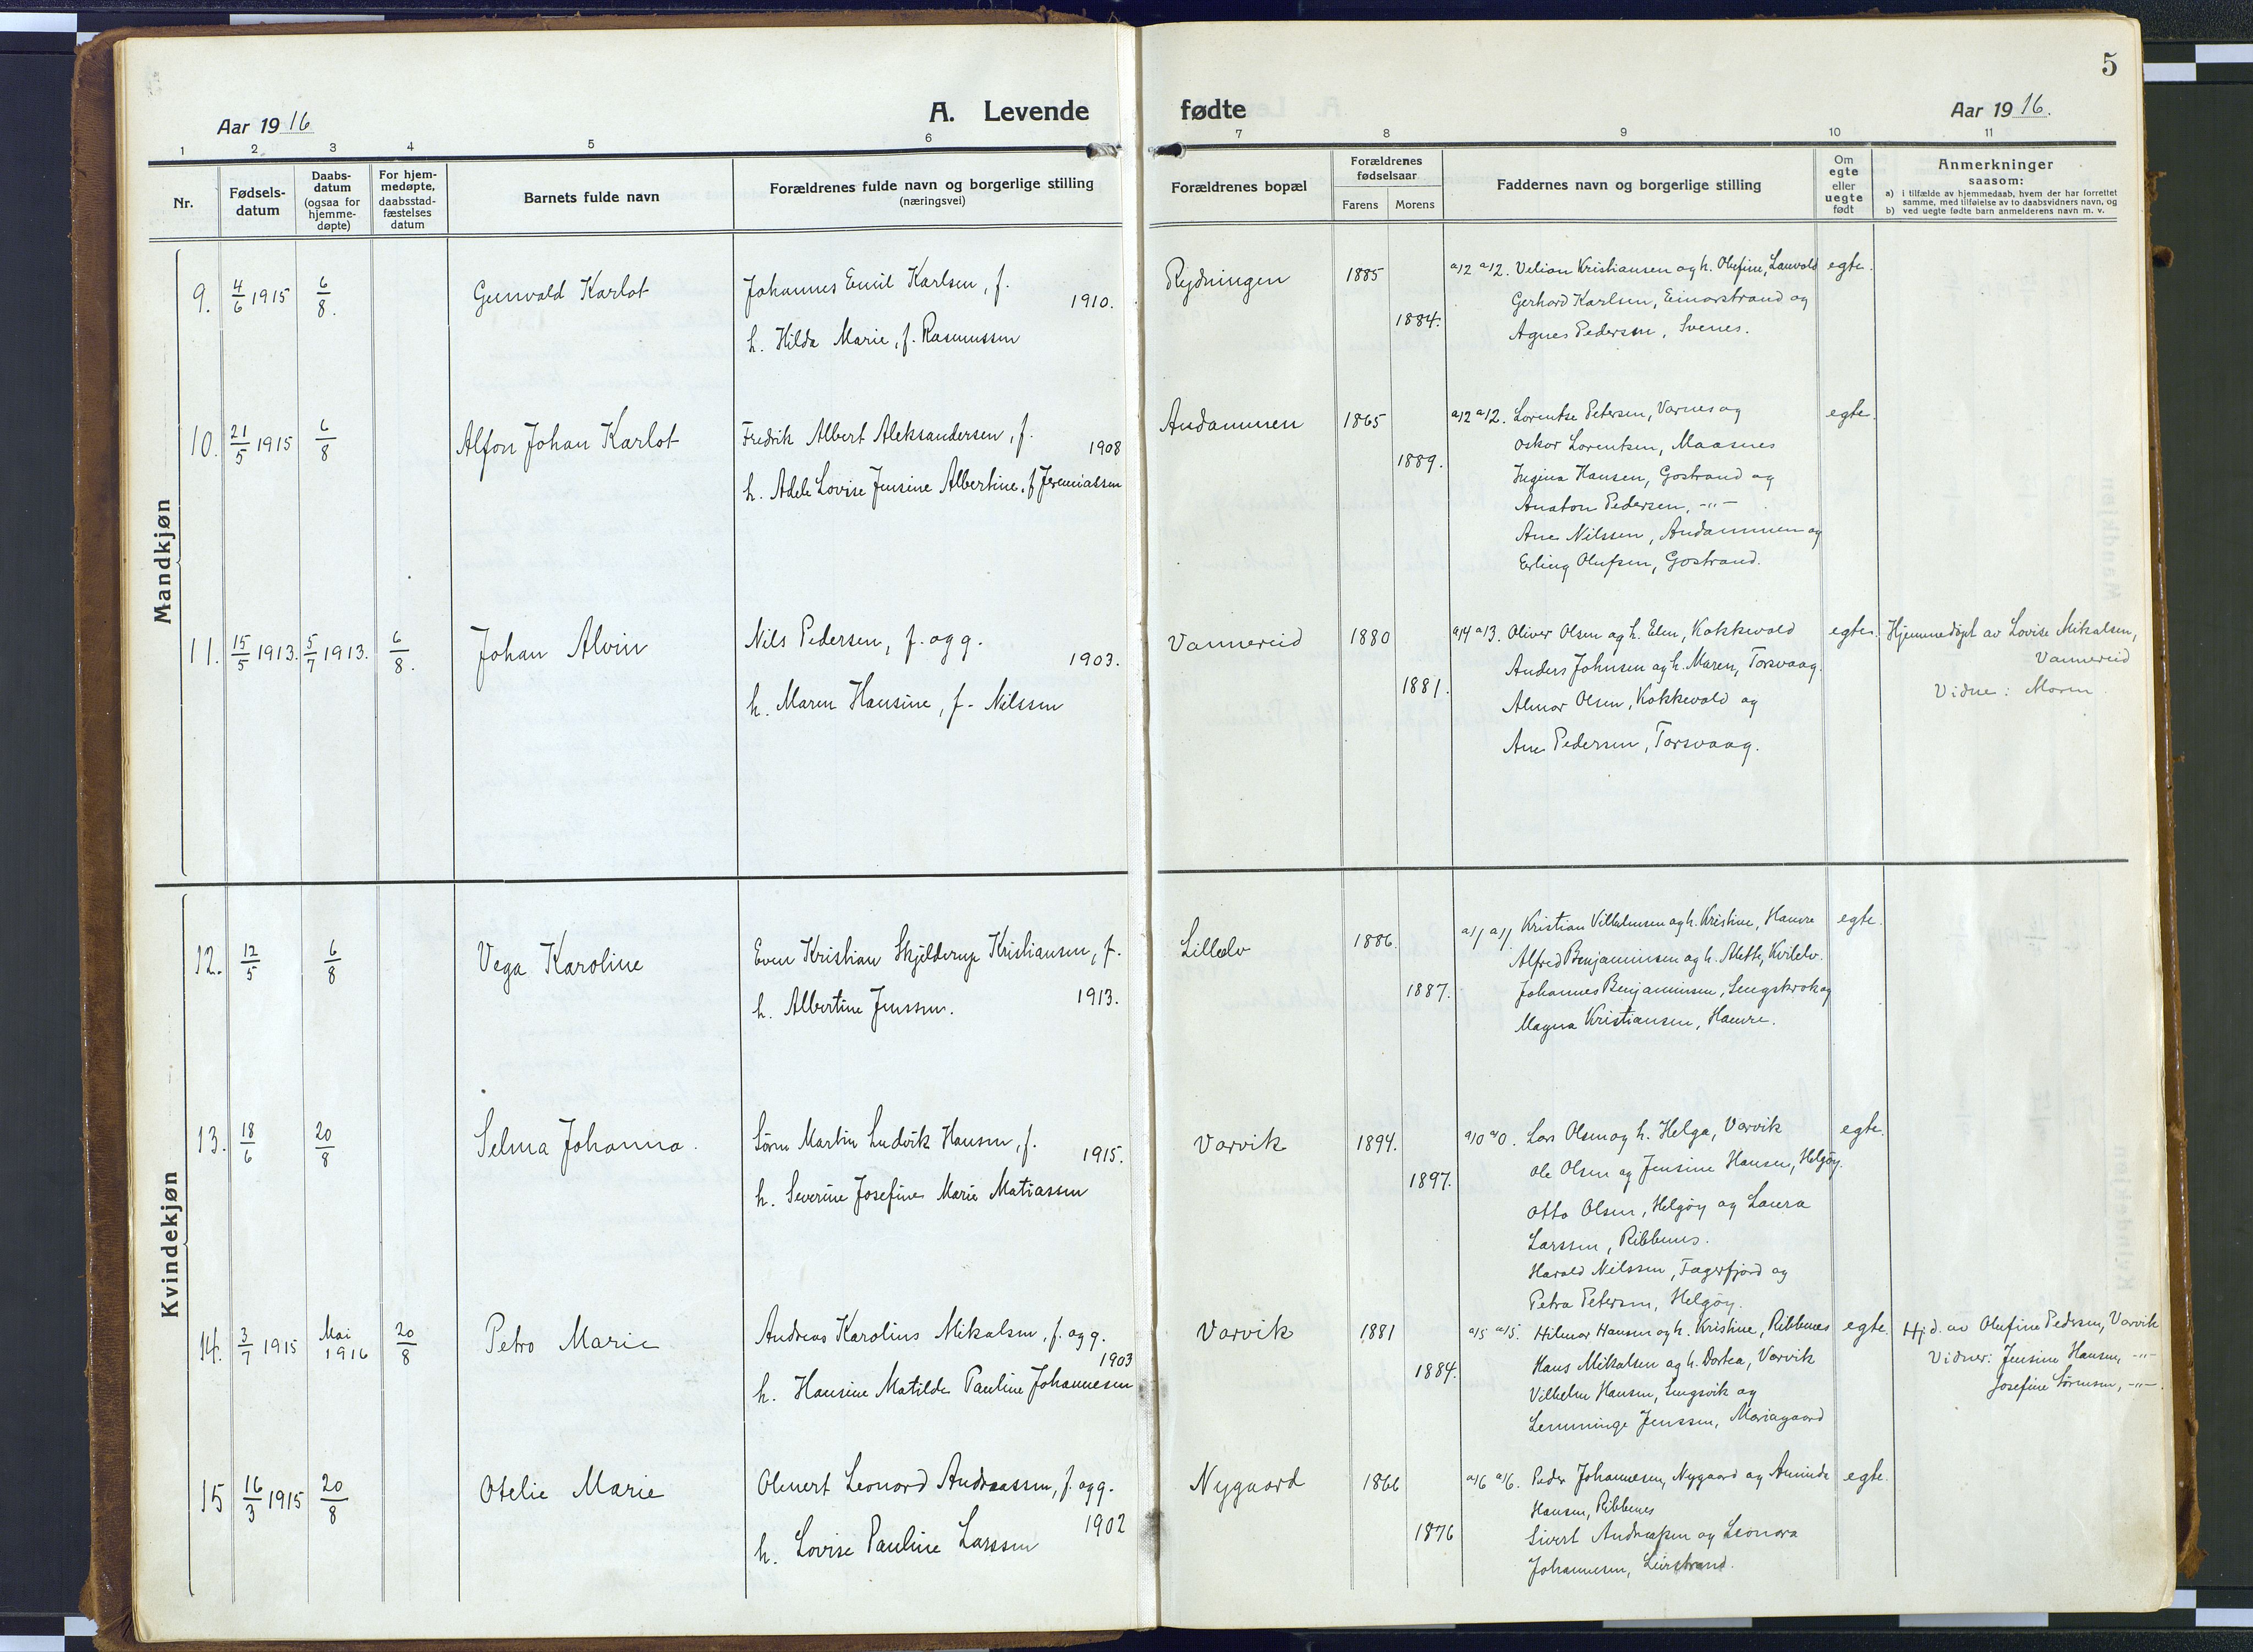 5
Aar 1916
A. Levende fødte
Aar 1916.
1 2 3 4 5 6 7 8 9 10 11
Nr.
Fødsels-
datum
Daabs-
datum
(ogsaa for
hjemme-
døpte)
For hjem-
medøpte,
daabsstad-
fæstelses
datum
Barnets fulde navn
Forældrenes fulde navn og borgerlige stilling
(næringsvei)
Forældrenes bopæl
Forældrenes
fødselsaar
Farens Morens
Faddernes navn og borgerlige stilling
Om
egte
eller
uegte
født
Anmerkninger
saasom:
a) i tilfælde av hjemmedaab, hvem der har forrettet
samme, med tilføielse av to daabsvidners navn, og
b) ved uegte fødte barn anmelderens navn m. v.
Mandkjøn
9. 4/6 1915 6/8. Gunvald Karlot
Johannes Emil Karlsen, f.
1910.
h. Hilda Marie, f. Rasmussen
Rydningen 1885
1884.
a12 a12. Velion Kristiansen og h. Olufine, Lauvold
Gerhard Karlsen, Einarstrand og
Agnes Pedersen, Svenes.
egte.
10. 21/5 1915 6/8 Alfon Johan Karlot
Fredrik Albert Aleksandersen, f.
1908
h. Adele Lovise Jensine Albertine, f Jeremiassen
Andammen 1865
1889.
a12 a12. Lorentse Petersen, Varnes og
Oskar Lorentsen, Maasnes
Ingina Hansen, Gostrand og
Anaton Pedersen, -"-
Ane Nilssen, Andammen og
Erling Olufsen, Gostrand.
egte.
11. 15/5 1913. 5/7 1913. 6/8. Johan Alvin
Nils Pedersen, f. og g.
1903.
h. Maren Hansine, f. Nilssen
Vannereid 1880
1881.
a14 a13. Oliver Olsen og h. Elen, Kokkevold
Anders Johnsen og h. Maren, Torsvaag.
Almar Olsen, Kokkevold og
Ane Pedersen, Torsvaag.
egte.
Hjemmedøpt av Lovise Mikalsen,
Vannereid
Vidne: Moren
Kvindekjøn
12. 12/5 6/8 Vega Karoline
Even Kristian Skjelderup Kristiansen, f.
1913.
h. Albertine Jenssen.
Lilleelv 1886.
1887.
a11 a11 Kristian Vilhelmsen og h. Kristine, Hamre
Alfred Benjaminsen og h. Alette, Kvitelv.
Johannes Benjaminsen, Lengskrok og
Magna Kristiansen, Hamre.
egte.
13. 18/6 20/8 Selma Johanna.
Sørn Martin Ludvik Hansen, f.
1915.
h. Severine Josefine Marie Matiassen
Varvik 1894.
1897.
a10 a10. Lars Olsen og h. Helga, Varvik
Ole Olsen og Jensine Hansen, Helgøy.
Otto Olsen, Helgøy og Laura
Larssen, Ribbenes.
Harald Nilssen, Fagerfjord og
Petra Petersen, Helgøy.
egte.
14. 3/7 1915 Mai 1916 20/8 Petro Marie
Andreas Karolius Mikalsen, f. og g.
1903
h. Hansine Matilde Pauline Johannesen
Varvik 1881
1884.
a15 a15. Hilmar Hansen og h. Kristine, Ribbenes
Hans Mikalsen og h. Dortea, Varvik
Vilhelm Hansen, Lengsvik og
Lemminge Jenssen, Mariagaard
egte.
Hj.d. av Olufine Pedersen, Varvik
Vidner: Jensine Hansen, -"-
Josefine Sørensen, -"-.
15 16/3 1915 20/8 Otelie Marie
Olmert Leonard Andreassen, f. og g.
1902
h. Lovise Pauline Larssen
Nygaard 1866
1876
a16 a16. Peder Johannesen, Nygaard og Aminda
Hansen, Ribbenes
Sivert Andreassen og Leonora
Johannesen, Leirstrand.
egte.